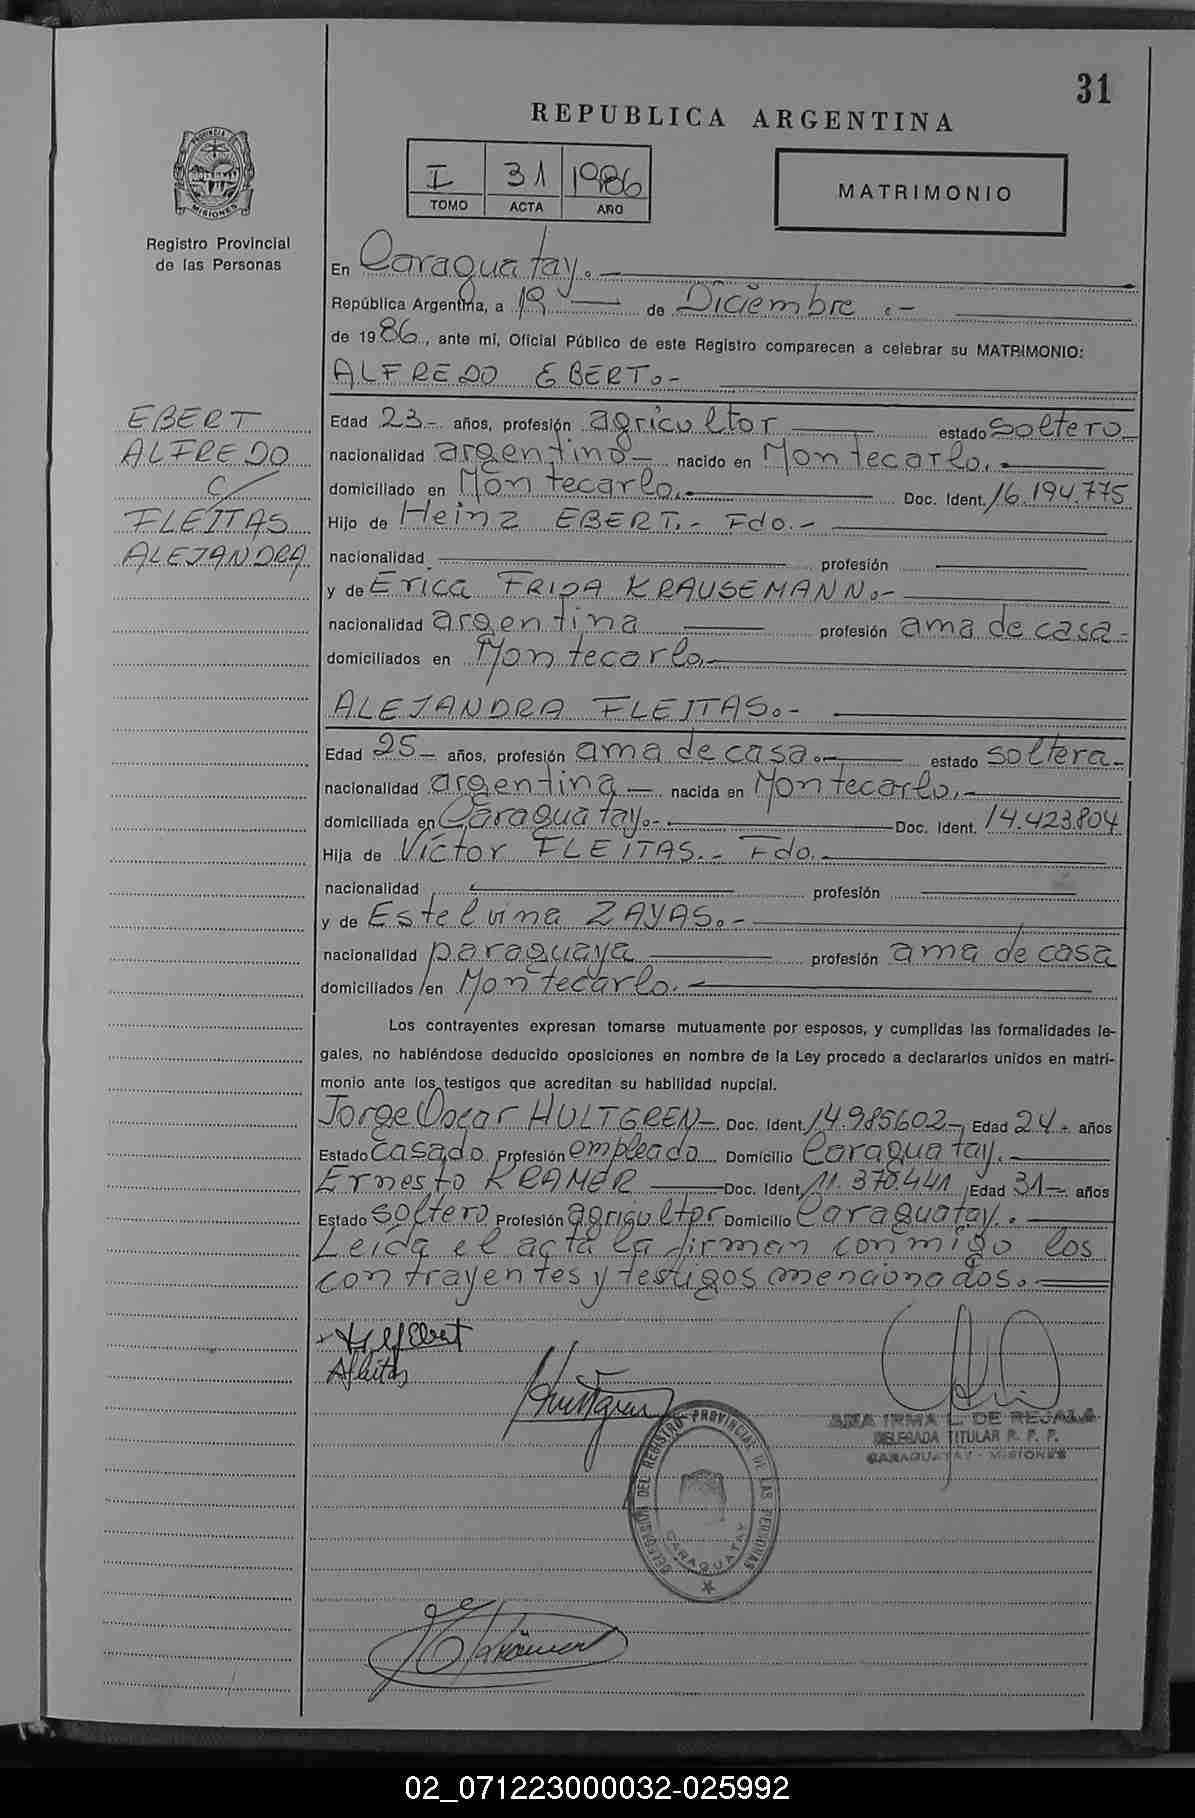 31
REPUBLICA ARGENTINA
PROVINCIA DE MISIONES
I 31 1986
TOMO ACTA AÑO
MATRIMONIO
Registro Provincial
de las Personas
En Caraguatay.-
República Argentina, a 19 de Diciembre.-
de 1986, ante mí, Oficial Público de este Registro comparecen a celebrar su MATRIMONIO:
ALFREDO EBERT.-
EBERT
ALFREDO
C/
FLEITAS
ALEJANDRA
Edad 23- años, profesión agricultor estado soltero
nacionalidad argentino- nacido en Montecarlo.
domiciliado en Montecarlo. Doc. Ident. 16.194.775
Hijo de Heinz EBERT.- Fdo.-
nacionalidad profesión
y de Erica FRIDA KRAUSEMANN.-
nacionalidad argentina profesión ama de casa-
domiciliados en Montecarlo.-
ALEJANDRA FLEITAS.-
Edad 25- años, profesión ama de casa.- estado soltera-
nacionalidad argentina- nacida en Montecarlo.-
domiciliada en Caraguatay.- Doc. Ident. 14.423.804
Hija de Víctor FLEITAS.- Fdo.-
nacionalidad profesión
y de Estelvina ZAYAS.-
nacionalidad paraguaya profesión ama de casa
domiciliados en Montecarlo.-
Los contrayentes expresan tomarse mutuamente por esposos, y cumplidas las formalidades le-
gales, no habiéndose deducido oposiciones en nombre de la Ley procedo a declararlos unidos en matri-
monio ante los testigos que acreditan su habilidad nupcial.
Jorge Oscar HULTGREN-. Doc. Ident. 14.985.602-, Edad 24- años
Estado casado Profesión empleado Domicilio Caraguatay.
Ernesto KRAMER Doc. Ident. 11.370.441 Edad 31- años
Estado soltero Profesión agricultor Domicilio Caraguatay.
Leida el acta la firman conmigo los
contrayentes y testigos mencionados.=
Alf Ebert
AFleitas
Hultgren
ANA IRMA L. DE REJALA
DELEGADA TITULAR R. P. P.
CARAGUATAY - MISIONES
DELEGACION DEL REGISTRO PROVINCIAL DE LAS PERSONAS
CARAGUATAY
E Krämer
02_071223000032-025992